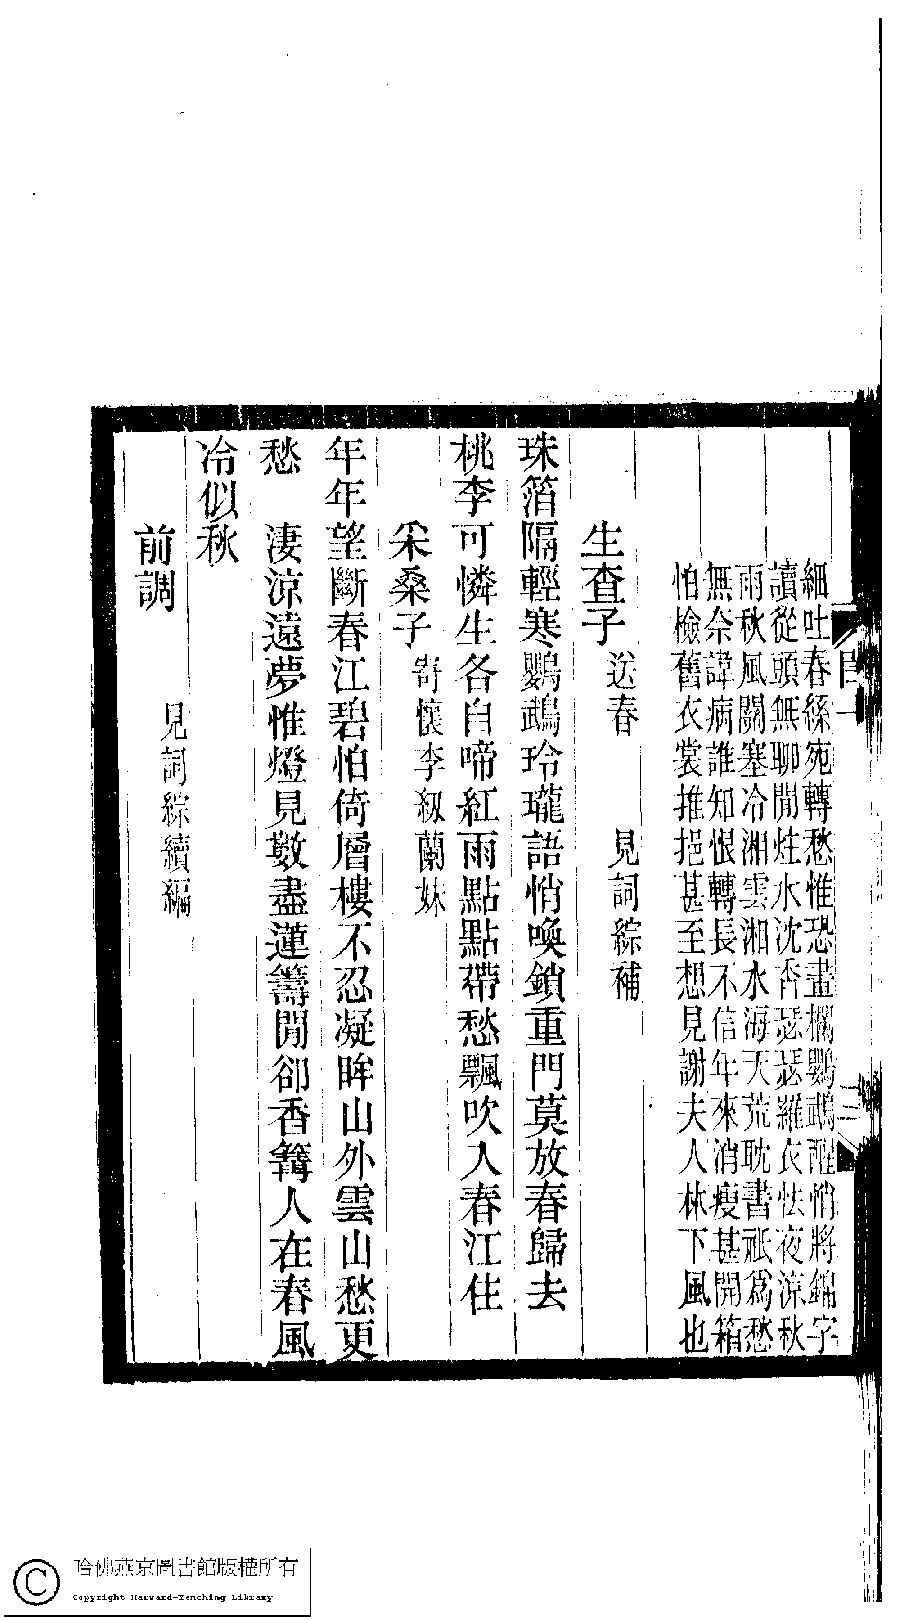 細吐春絲宛轉愁惟恐畫欄鸚鵡醒悄將錦字
讀從頭無聊閒炷水沈香瑟瑟羅衣怯夜涼秋
雨秋風關塞冷湘雲湘水海天荒耽書祗爲愁
無奈諱病誰知恨轉長不信年來消瘦甚開箱
怕檢舊衣裳推挹甚至想見謝夫人林下風也
生查子 送春 見詞綜補
珠箔隔輕寒鸚鵡玲瓏語悄喚鎖重門莫放春歸去
桃李可憐生各自啼紅雨點點帶愁飄吹入春江住
采桑子 寄懷李紉蘭妹
年年望斷春江碧怕倚層樓不忍凝眸山外雲山愁更
愁 淒涼遠夢惟燈見數盡蓮籌閒卻香篝人在春風
冷似秋
前調 見詞綜續編
哈佛燕京圖書館版權所有
Copyright Harvard-Yenching Library